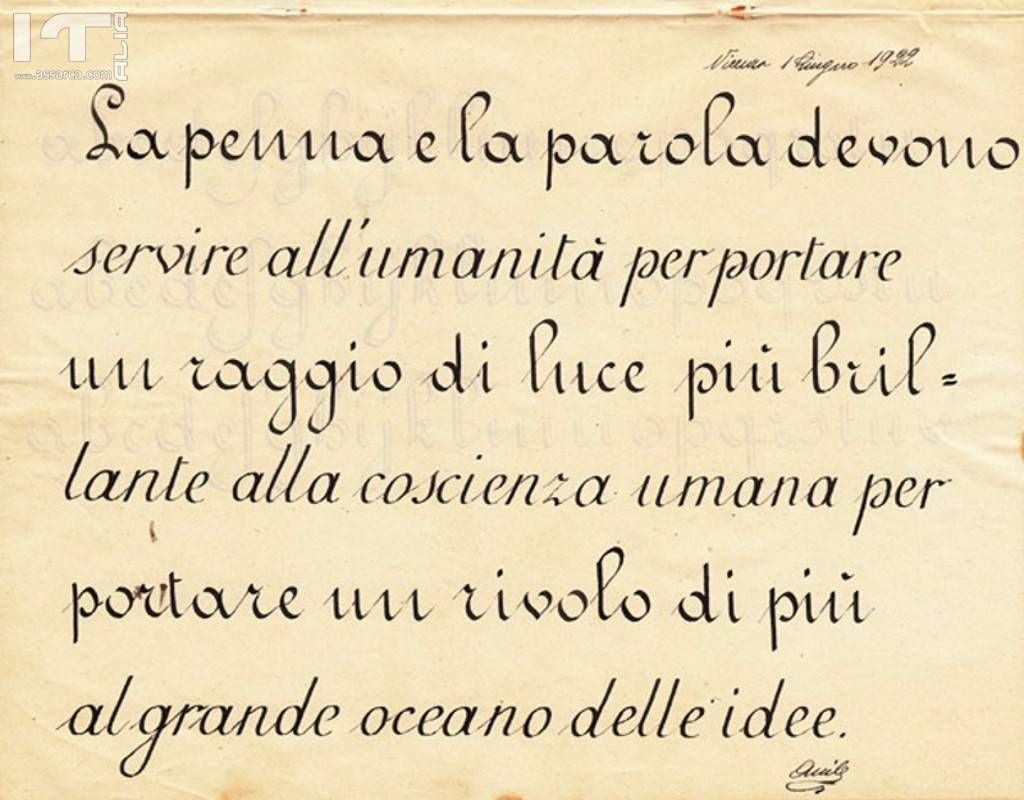 IT
ALIA
www.assarca.com
Vicenza 1 Giugno 1922
La penna e la parola devono
servire all'umanità per portare
un raggio di luce più bril=
lante alla coscienza umana per
portare un rivolo di più
al grande oceano delle idee.